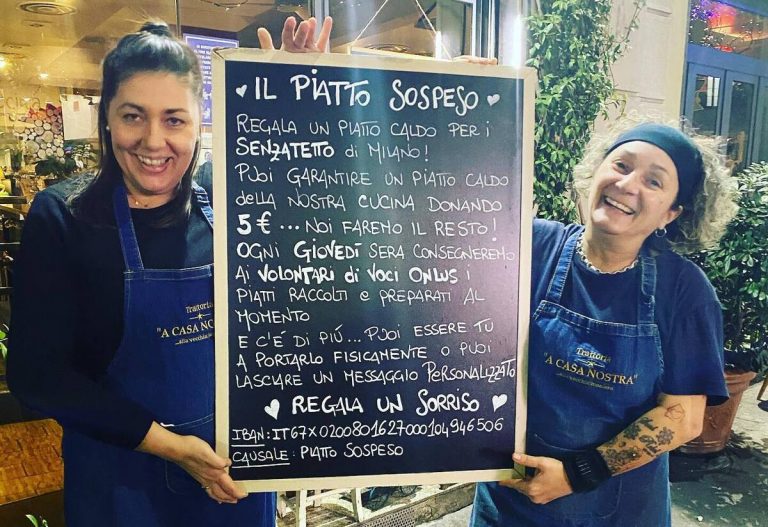 IL PIATTO SOSPESO
REGALA UN PIATTO CALDO PER i
SENZATETTO di MILANO!
PUOI GARANTIRE UN PIATTO CALDO
dELLA NOSTRA CUCINA DONANDO
5€... NOI FAREMO IL RESTO!
OGNI GIOVEDÌ SERA CONSEGNEREMO
Ai VOLONTARI di VOCI ONLUS i
PIATTI RACCOLTI e PREPARATI AL
MOMENTO
E C'È DI PIÙ... PUOI ESSERE TU
A PORTARLO FISICAMENTE O PUOI
LASCIARE UN MESSAGGIO PERSONALIZZATO
REGALA UN SORRISO
IBAN: IT67X0200801627000104946506
CAUSALE: PIATTO SOSPESO
Trattoria
"A CASA NOSTRA"
alla vecchia
Trattoria
"A CASA NOSTRA"